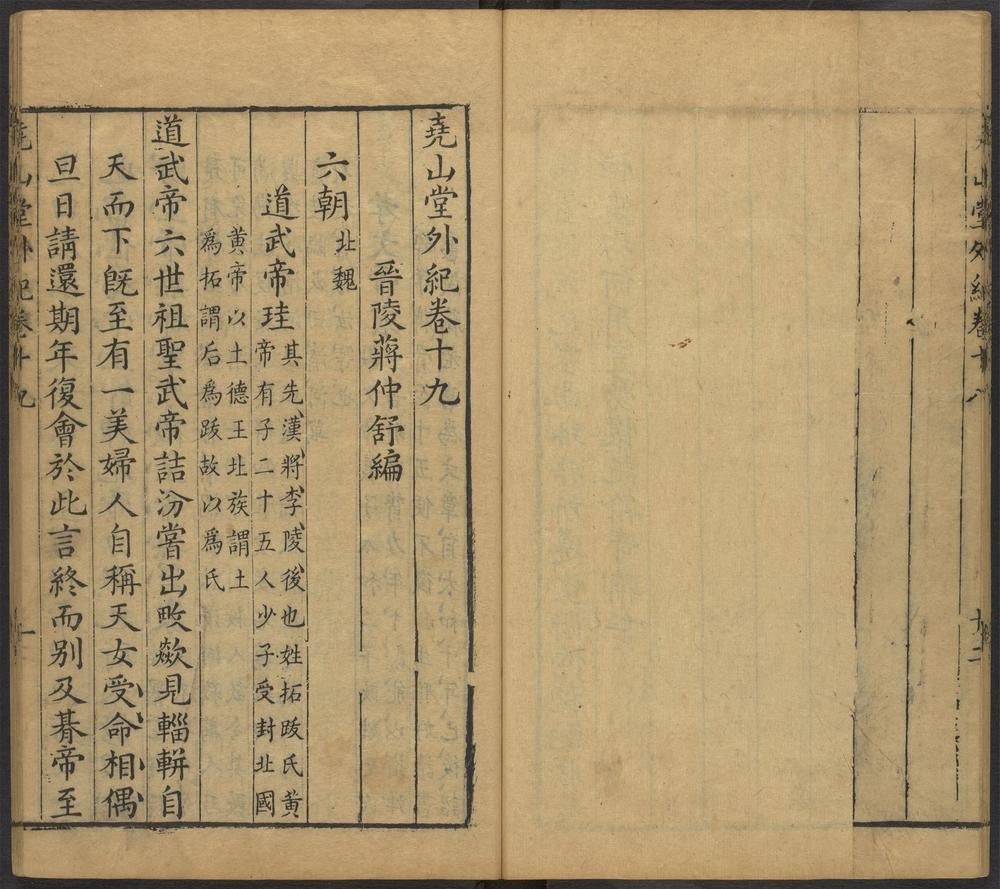 堯山堂外紀卷十八
十二
堯山堂外紀卷十九
晉陵蔣仲舒編
六朝 北魏
道武帝珪 其先漢將李陵後也姓拓跋氏黃
帝有子二十五人少子受封北國
黃帝以土德王北族謂土
爲拓謂后爲跋故以爲氏
道武帝六世祖聖武帝詰汾嘗出畋歘見輜軿自
天而下旣至有一美婦人自稱天女受命相偶
旦日請還期年復會於此言終而別及朞帝至
堯山堂外紀卷十九
一